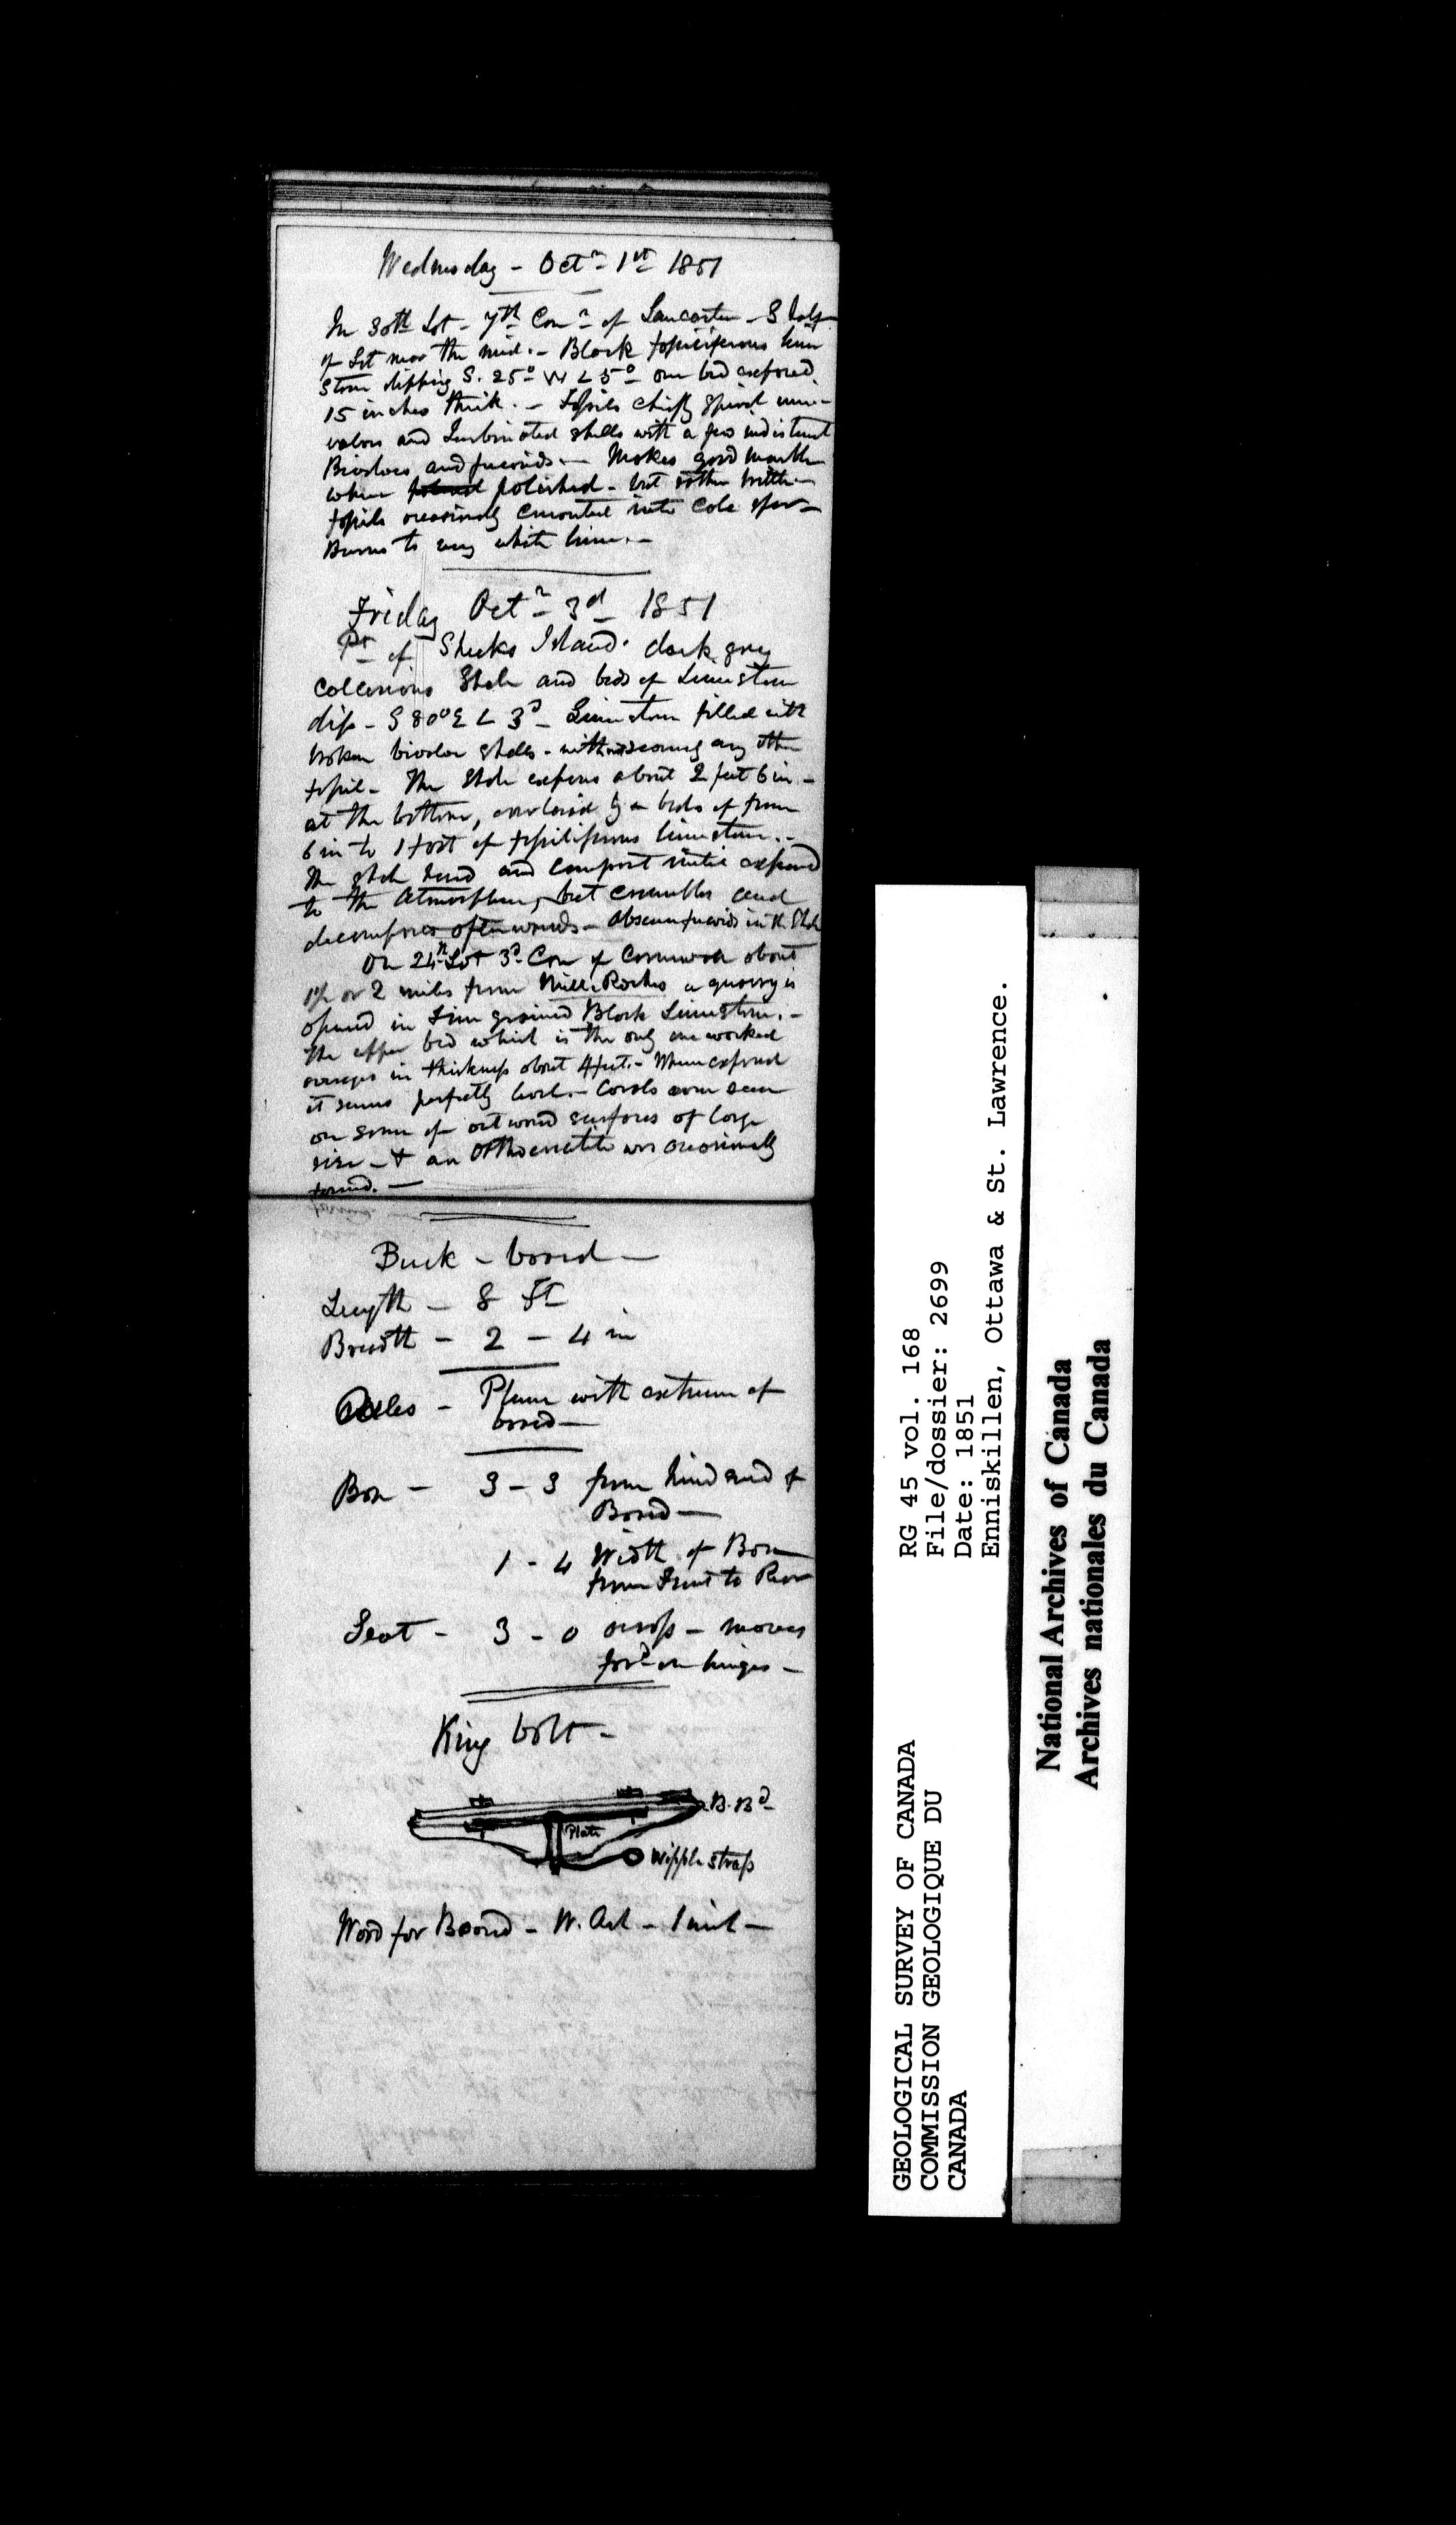 Wednesday - Octr 1st 1851
In 30th Lot - 7th Conn of Lancaster - S half
of Lot near the mid. - Black fossiliferous lime
stone dipping S. 25° W L 5° one bed exposed
15 inches thick. - Fossils chiefly spiral uni-
valves and Turbinated shells with a few indistinct
Bivalves and fucoids - Makes good marble
when polished - but rather brittle -
fossils occasionally converted into Calc spar -
Burns to very white lime. -
Friday Octr 3d 1851
Pt of Sheeks Island. dark grey
calcareous Shale and beds of Limestone
dip - S 80° E L 3° - Limestone filled with
broken bivalve shells - without seeing any other
fossil - The Shale exposes about 2 feet 6 in -
at the bottom, overlaid by beds of from
6 in to 1 foot of fossiliferous limestone. -
The shale hard and compact until exposed
to the Atmosphere, but crumbles and
decomposes afterwards - Obscure fucoids in the Shale
On 24th Lot 3d Con of Cornwall about
1½ or 2 miles from Mille Roches a quarry is
opened in fine grained Black Limestone. -
The upper bed which is the only one worked
averages in thickness about 4 feet. - When exposed
it seems perfectly level. - Corals were seen
on some of outward surfaces of large
size - & an Orthoceratite was occasionally
found. -
Buck - board -
Length - 8 Ft
Breadth - 2 - 4 in
Axles - Plum with extreme of
board -
Box - 3 - 3 from hind end of
Board -
1 - 4 Width of Box
from Front to Rear
Seat - 3 - 0 across - moves
ford on hinges -
King bolt -
B. Bd
Plate
Wipple strap
Wood for Board - W. Ash - 1 inch -
RG 45 vol. 168
File/dossier: 2699
Date: 1851
Enniskillen, Ottawa & St. Lawrence.
GEOLOGICAL SURVEY OF CANADA
COMMISSION GEOLOGIQUE DU
CANADA
National Archives of Canada
Archives nationales du Canada